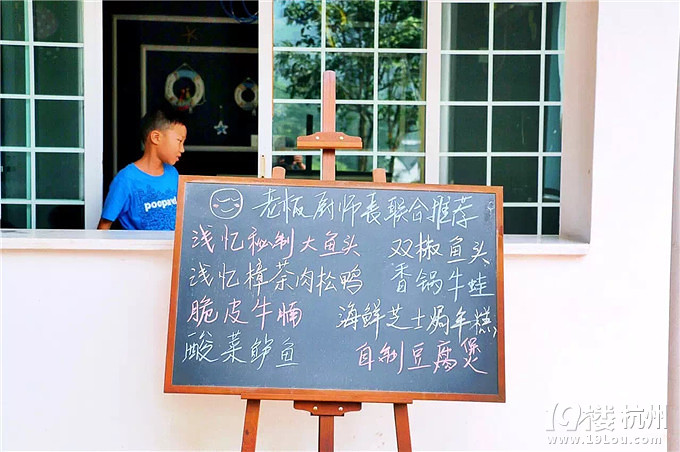 老板厨师长联合推荐
浅忆秘制大鱼头 双椒鱼头
浅忆樟茶肉松鸭 香锅牛蛙
脆皮牛腩 海鲜芝士焗年糕
酸菜鲈鱼 自制豆腐煲
19楼 杭州
www.19lou.com